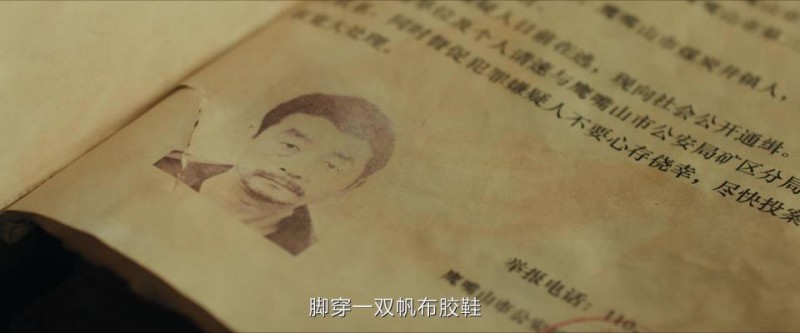 鹰嘴山市煤炭井镇人,
疑人目前在逃,现向社会公开通缉。
单位及个人请速与鹰嘴山市公安局矿区分局
同时督促犯罪嫌疑人不要心存侥幸,尽快投案
宽大处理。
举报电话:110
鹰嘴山市公安
脚穿一双帆布胶鞋